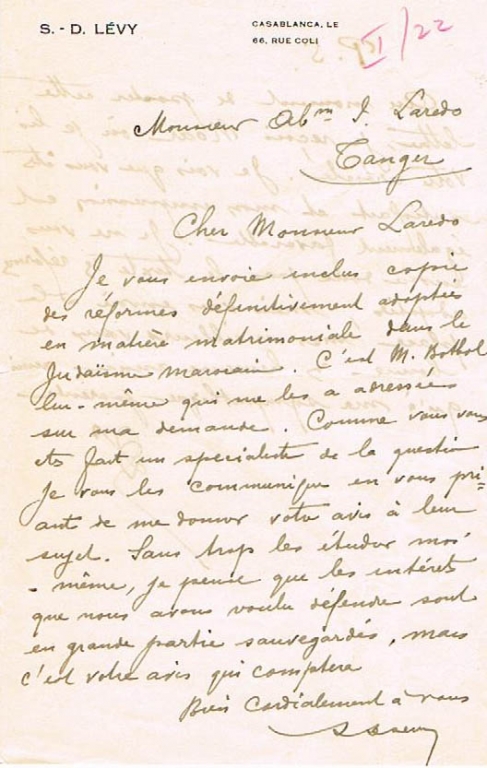 S. - D. LÉVY
CASABLANCA, LE
66, RUE COLI
I/22
Monsieur Abm I. Laredo
Tanger
Cher Monsieur Laredo
Je vous envoie inclus copie
des réformes définitivement adoptées
en matière matrimoniale dans le
Judaïsme marocain. C'est M. Botbol
lui-même qui me les a adressées
sur ma demande. Comme vous vous
êts fait un specialiste de la question
je vous les communique en vous pri=
ant de me donner votre avis à leur
sujet. Sans trop les étudier moi
- même, je pense que les intérêts
que nous avons voulu défendre sont
en grande partie sauvegardés, mais
c'est votre avis qui comptera
Bien Cordialement à vous